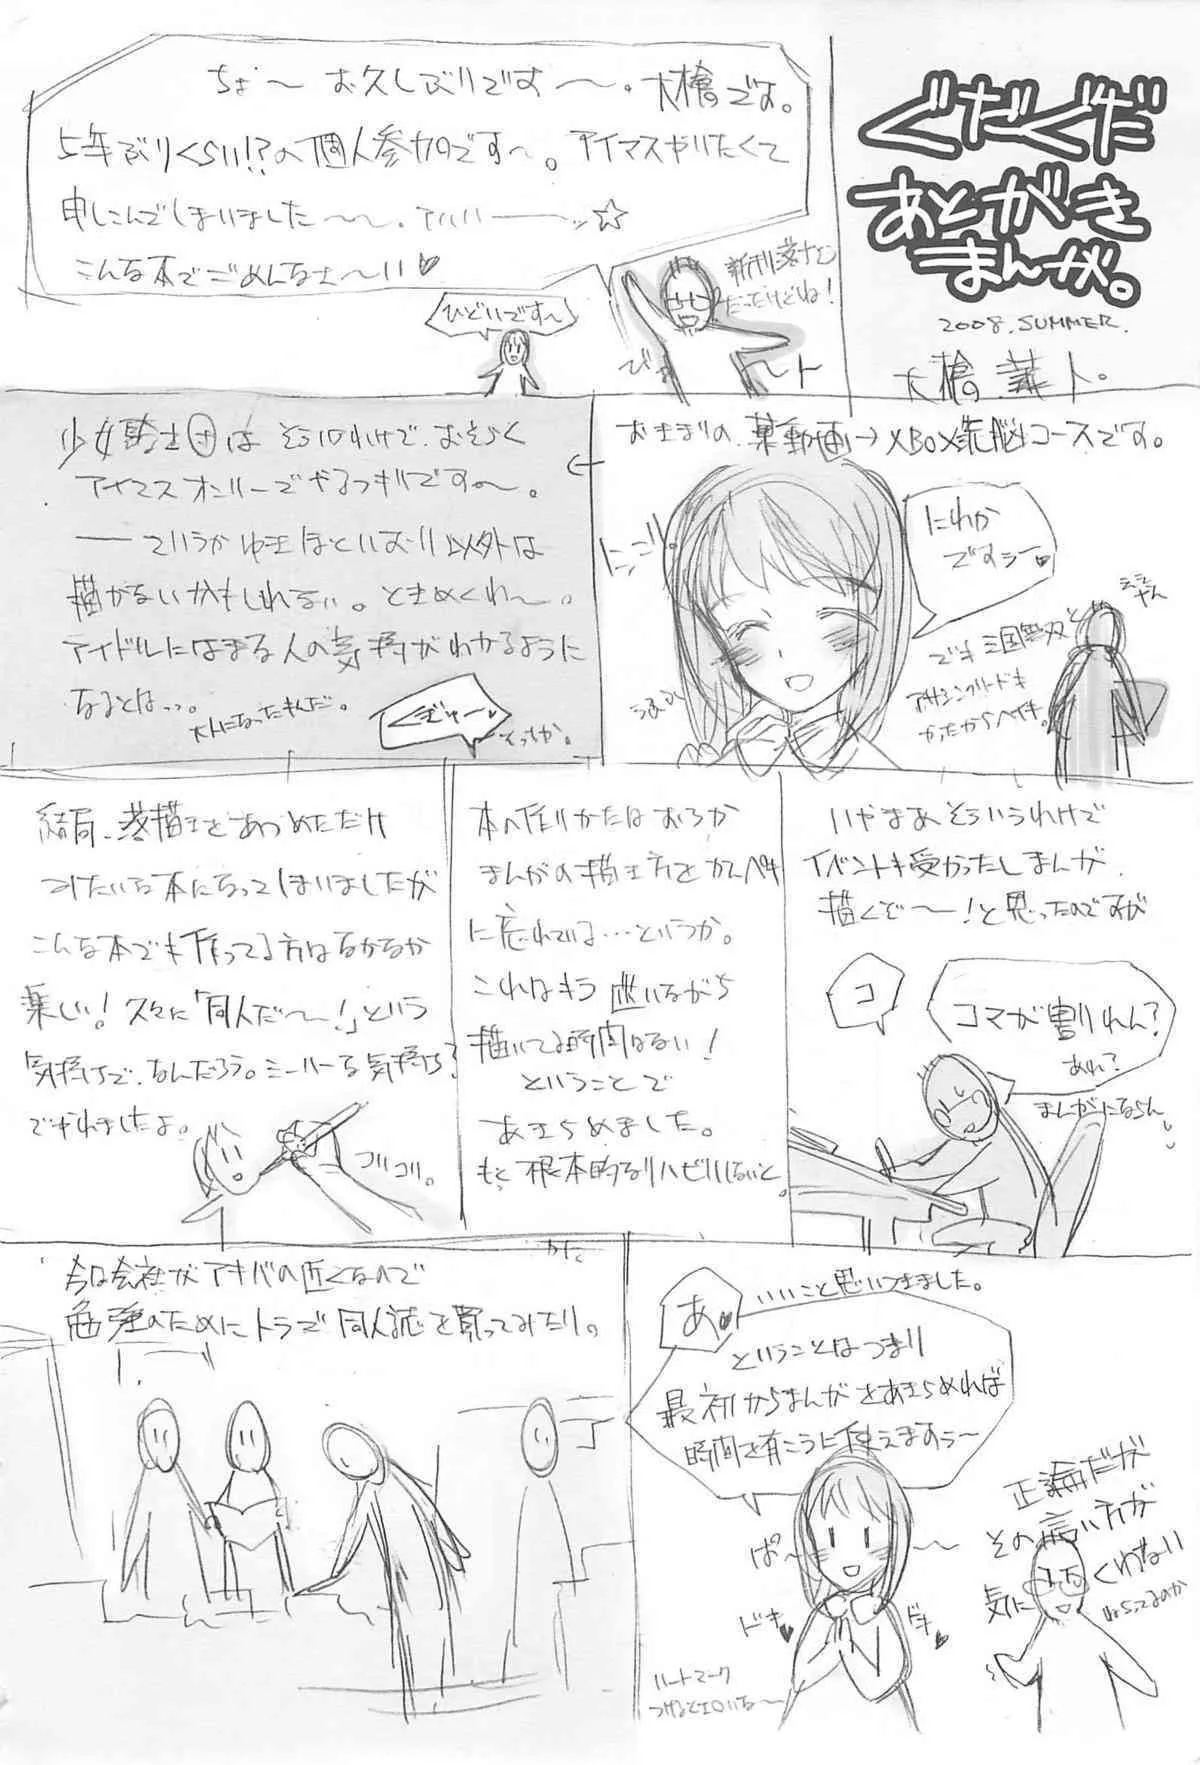 ぐだぐだ
あとがき
まんが。
2008.SUMMER.
ちょ〜お久しぶりです〜。大槍です。
5年ぶりくらい!?の個人参加です〜。アイマスやりたくて
申しこんでしまいました〜〜。アハハーーッ☆
こんな本でごめんなさ〜い♥
新刊落ナシ
だったけどね!
ひどいです〜
おきまりの、某動画→XBOX洗脳コースです。
にわか
ですぅー♥
ニコッ
でも三国無双と
アサシンクリードも
かったからヘイキ。
少女騎士団はそういうわけで、おそらく
アイマスオンリーでやるつもりです〜。
ーていうかゆきほといおり以外は
描かないかもしれない。ときめくわ〜。
アイドルにはまる人の気持がわかるように
なるとはっ。
大人になったもんだ。
そっちか。
いやまあそういうわけで
イベントも受かったしまんが
描くぞ〜!と思ったのですが
コ
コマが割れん?
あれ?
まんがにならん
本の作りかたはおろか
まんがの描き方をカンペキ
に忘れている…というか。
これはもう迷いながら
描いてる時間はない!
ということで
あきらめました。
もっと根本的なリハビリしないと。
結局、落描きをあつめただけ
みたいな本になってしまいましたが
こんな本でも作ってる方はなかなか
楽しい!久々に「同人だ〜!」という
気持ちで、なんだろう。ミーハーな気持ち?
で作れましたよ。
コリコリ。
あ♥
いいこと思いつきました。
ということはつまり
最初からまんがをあきらめれば
時間を有こうに使えますぅ〜
ぱ〜
ドキ♥
ドキ♥
ハートマーク
つけるとエロいな〜
正論だが
その言い方が
気にくわない
ねらってるのか
今日会社がアキバの近くなので
勉強のためにトラで同人誌を買ってみたり。